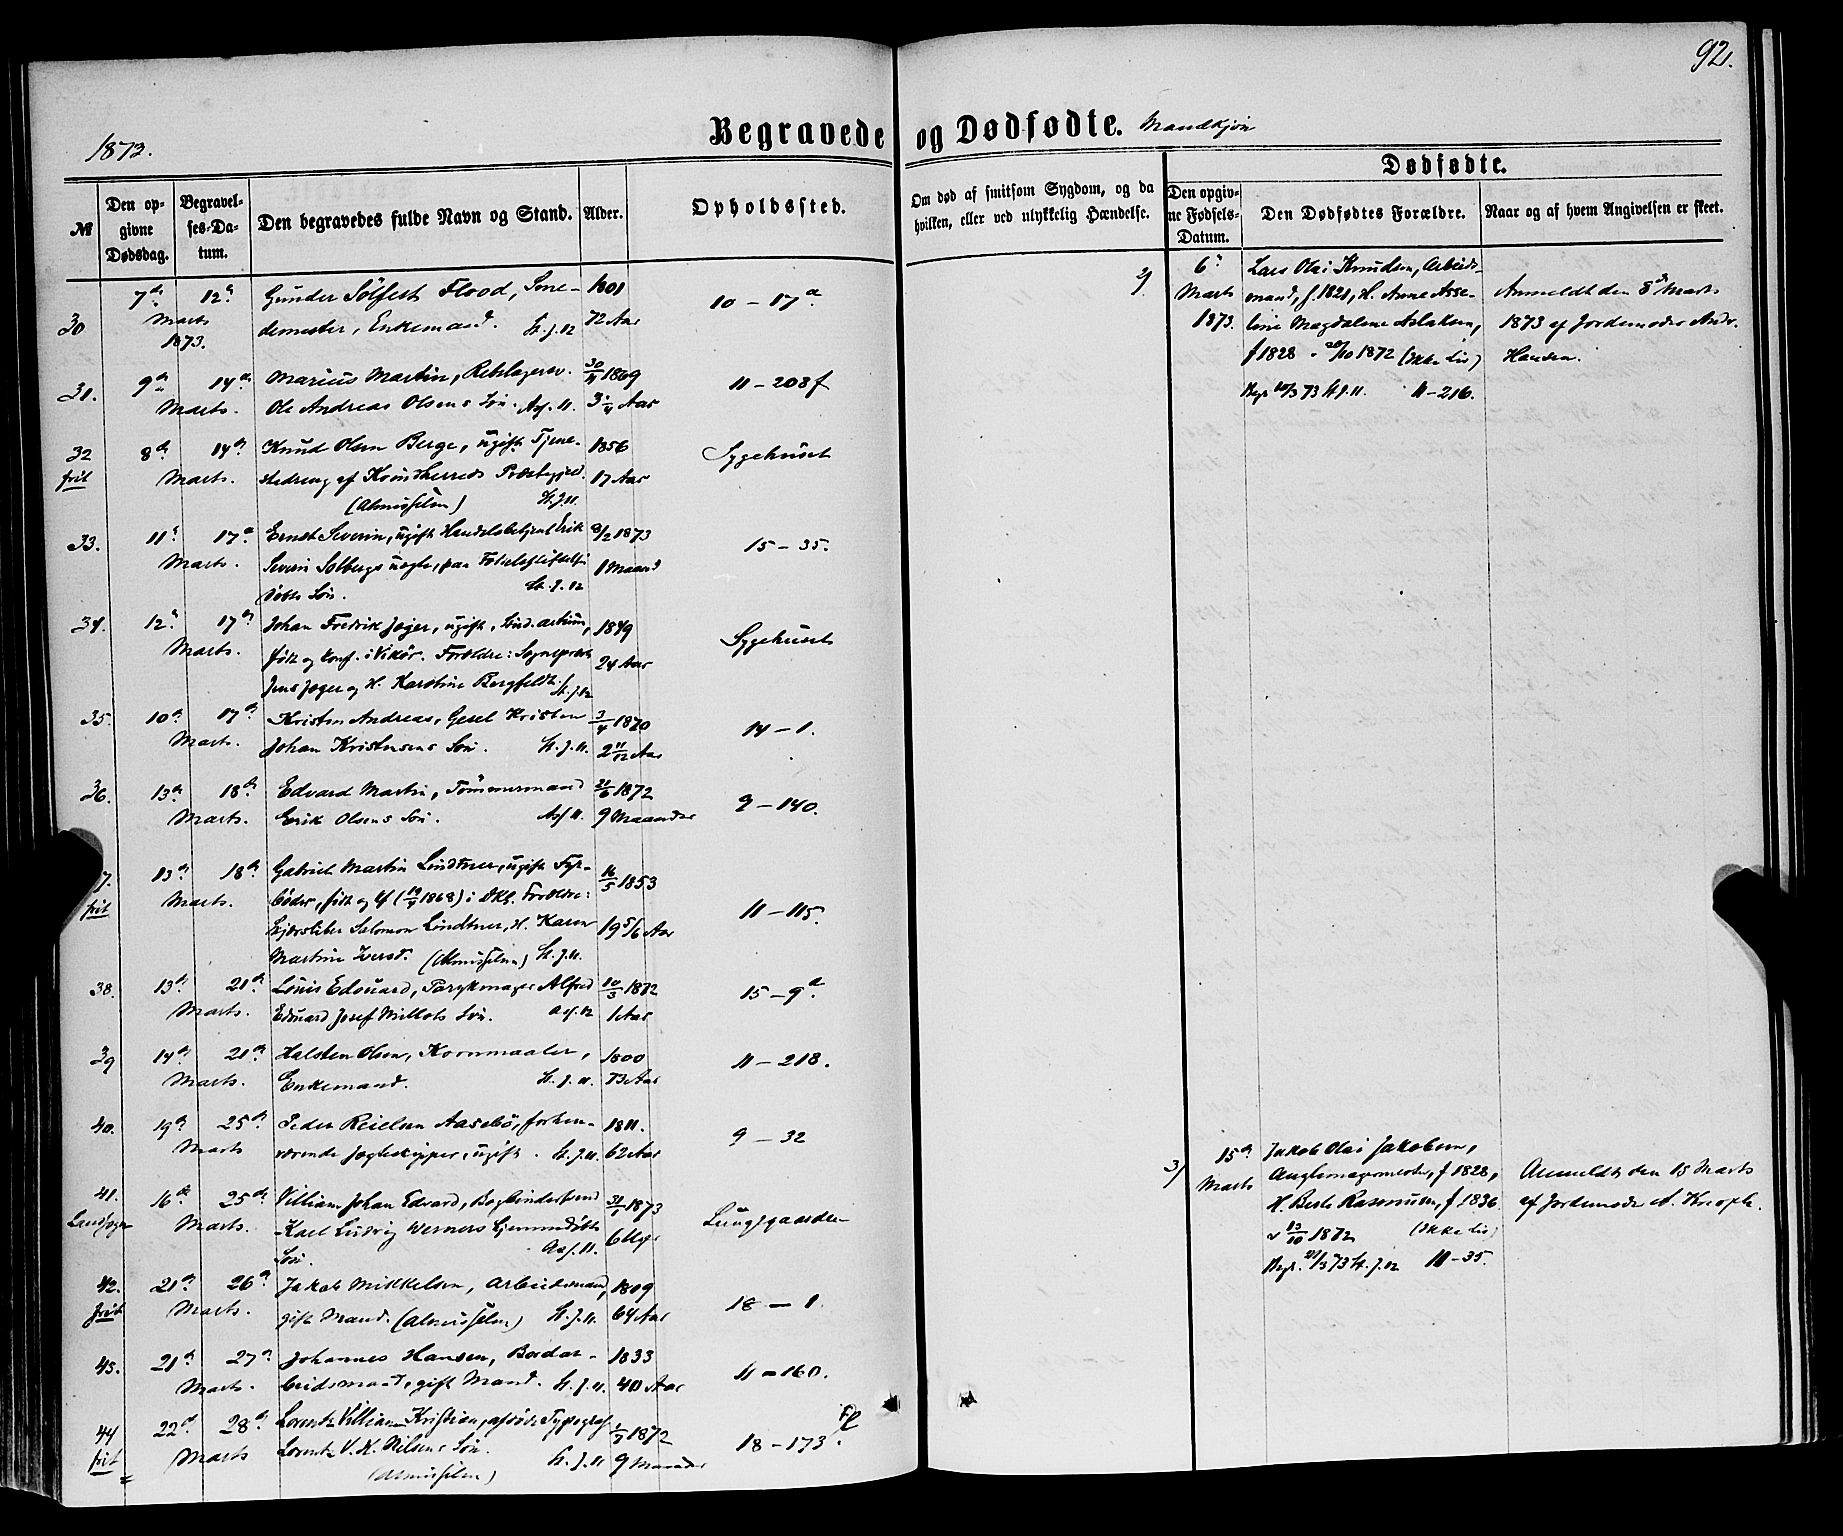 92.
1873.
Begravede og Dødfødte. Mandkjøn
Dødfødte.
№
Den opgivne Dødsdag.
Begravelses-Datum.
Den begravedes fulde Navn og Stand.
Alder.
Opholdssted.
Om død af smitsom Sygdom, og da
hvilken, eller ved ulykkelig Hændelse.
Den opgivne Fødsels-Datum.
Den Dødfødtes Forældre.
Naar og af hvem Angivelsen er skeet.
30 7de 12te Gunder Sølfest Flood, 1801 10 – 17a
Marts demester, Enkemand. St. J. 12 72 Aar
1873.
31. 9de 14de Marius Martin, Rebslagersv. 30/11 1869 11 – 208f
Marts. Ole Andreas Olsens Søn. Asf. 11. 3 1/4 Aar
32 8de 14de Knud Olsen Berge, ugift Tjene- 1856 Sygehuset
frit Marts. stedreng af Kvindherreds Præstegjeld. 17 Aar
(Almisselem) St. J. 11.
33. 11te 17de Ernst Severin, ugift Handelsbetjent Erik 8/2 1873 15 – 35.
Marts. Severin Solbergs uægte, paa Fødselsstiftelsen 1 Maaned
døbte Søn. St. J. 12
34. 12te 17de Johan Fredrik Jæger, ugift, Stud. artium, 1849 Sygehuset
Marts. født og konf. i Vikør. Forældre: Sognepræst 24 Aar
Jens Jæger og H. Karstine Bergfeldt. St. J. 12
35. 10de 17de Kristen Andreas, Gesel Kristen 3/4 1870 14 – 1.
Marts. Johan Kristensens Søn. St. J. 11. 2 11/12 Aar
36. 13de 18de Edvard Martin, Tømmermand 22/6 1872 9 – 140.
Marts. Erik Olsens Søn. Asf 11. 9 Maaneder
7. 13de 18de Gabriel Martin Lindtner, ugift Fyr- 16/5 1853 11 – 115.
frit Marts. bøder, født og kf (19/4 1868) i DKs. Forældre:
Salomon Lindtner, H. Karen 19 5/6 Aar
Martine Iversd. (Almisselem) St. J. 11.
38. 13de 21de Louis Edouard, Parykmager Alfred 10/3 1872 15 – 9a.
Marts. Edouard Josef Millots Søn. Asf. 12 1 Aar
39 14de 21de Halsten Olsen, Kornmaaler, 1800 11 – 218.
Marts. Enkemand. St. J. 11. 73 Aar
40. 19de 25de Peder Reielsen Aasebø, forhen- 1811. 9 – 32
Marts værende Jægteskipper, ugift. St. J. 11. 62 Aar
41. 16de 25de Villiam Johan Edvard, Bogbindersvend 31/1 1873 Lungegaarden
Landsogn Marts. Karl Ludvig Werners hjemmedøbte 6 Uger
Søn. Asf. 11.
42. 21de 26de Jakob Mikkelsen, Arbeidsmand, 1809 18 – 1.
frit Marts. gift Mand. (Almisselem) St. J. 11. 64 Aar
43. 21de 27de Johannes Hansen, Bordar- 1833 11 – 160.
Marts. beidsmand, gift Mand. St. J. 11. 40 Aar
44 22de 28de Lorentz Villiam Kristian, afdøde Typograf 1/7 1872 18 – 173
frit Marts Lorentz V. K. Nilsens Søn. St. J. 11 9 Maaneder
(Almisselem)
2) 6te Lars Olai Knudsen, Arbeids-
Marts mand, f. 1821, H. Anne Asse- Anmeldt den 8de Marts
1873. line Magdalene Aslaksen, 1873 af Jordemoder Andr.
f 1828 – 20/10 1872 (Ikke Liv) Hansen.
Begr 10/3 73 St. J. 11. 11 – 216.
3) 15de Jakob Olai Jakobsen,
Marts Anglemagermester, f 1828, Anmeldt den 15 Marts
H. Berte Rasmussen, f 1836. af Jordemoder A.
v 13/10 1872 (Ikke Liv)
Begr. 21/3 73 St. J. 12 11 – 35.